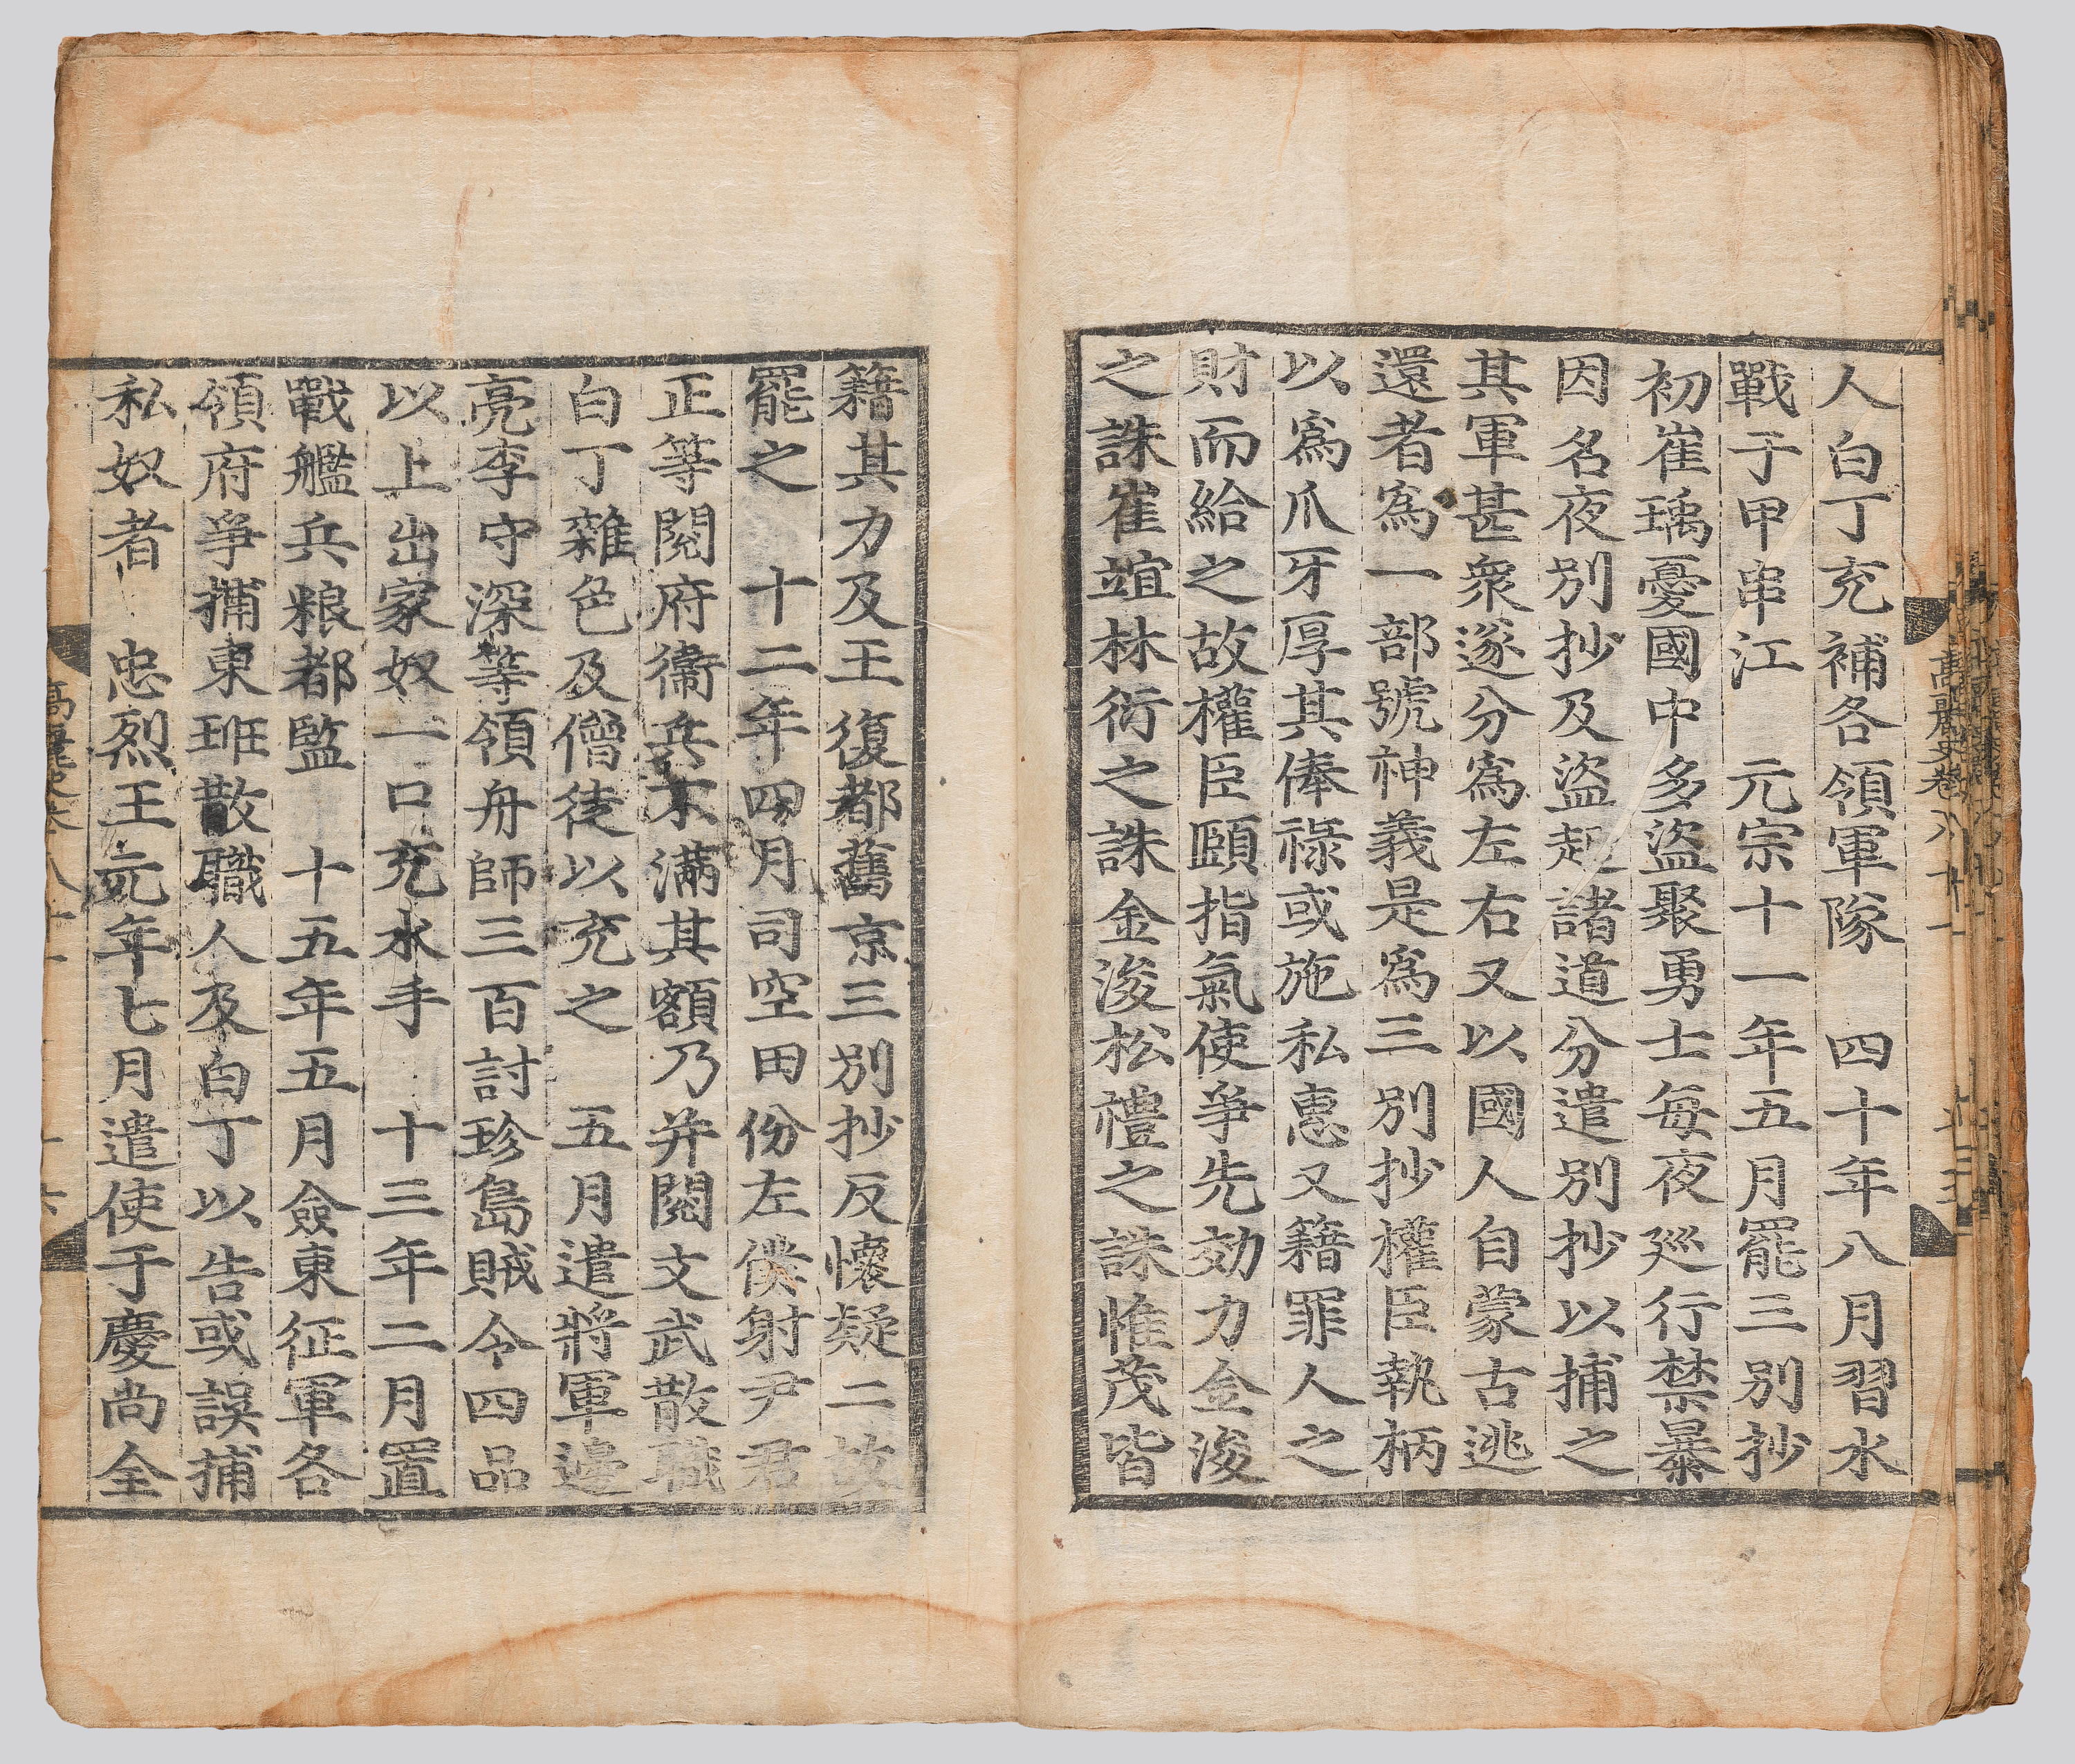 人白丁充補各領軍隊 四十年八月習水
戰于甲串江 元宗十一年五月罷三別抄
初崔瑀憂國中多盜聚勇士每夜廵行禁暴
因名夜別抄及盜起諸道分遣別抄以捕之
其軍甚衆遂分爲左右又以國人自蒙古逃
還者爲一部號神義是爲三別抄權臣執柄
以爲爪牙厚其俸祿或施私惠又籍罪人之
財而給之故權臣頤指氣使爭先効力金浚
之誅崔竩林衍之誅金浚松禮之誅惟茂皆
籍其力及王復都舊京三別抄反懷疑二故
罷之 十二年四月司空田份左僕射尹君
正等閱府衛兵不滿其額乃并閱文武散職
白丁雜色及僧徒以充之 五月遣將軍邊
亮李守深等領舟師三百討珍島賊令四品
以上出家奴一口充水手 十三年二月置
戰艦兵粮都監 十五年五月僉東征軍各
領府爭捕東班散職人及白丁以告或誤捕
私奴者 忠烈王元年七月遣使于慶尚全
高麗史卷八十一